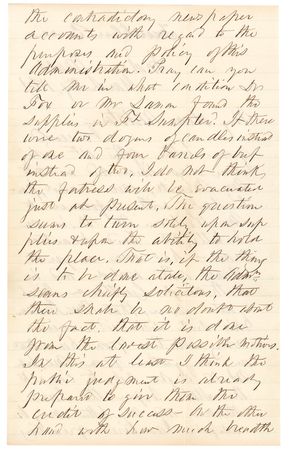 the contradictory newspaper
accounts with regard to the
purposes and policy of this
Administration. Pray, can you
tell me in what condition Dr
Fox or Mr Lamon found the
supplies in Ft Sumpter. If there
were two dozens of candles instead
of one and four barrels of beef
instead of two, I do not think,
the fortress will be evacuated
just at present. The question
seems to turn solely upon sup
plies & upon the ability to hold
the place. That is, if the thing
is to be done at all, the Admn
seems chiefly solicitous, that
there shall be no doubt about
the fact, that it is done
from the lowest possible motives.
In this at least I think the
public judgment is already
prepared to give them the
credit of success - On the other
hand with how much